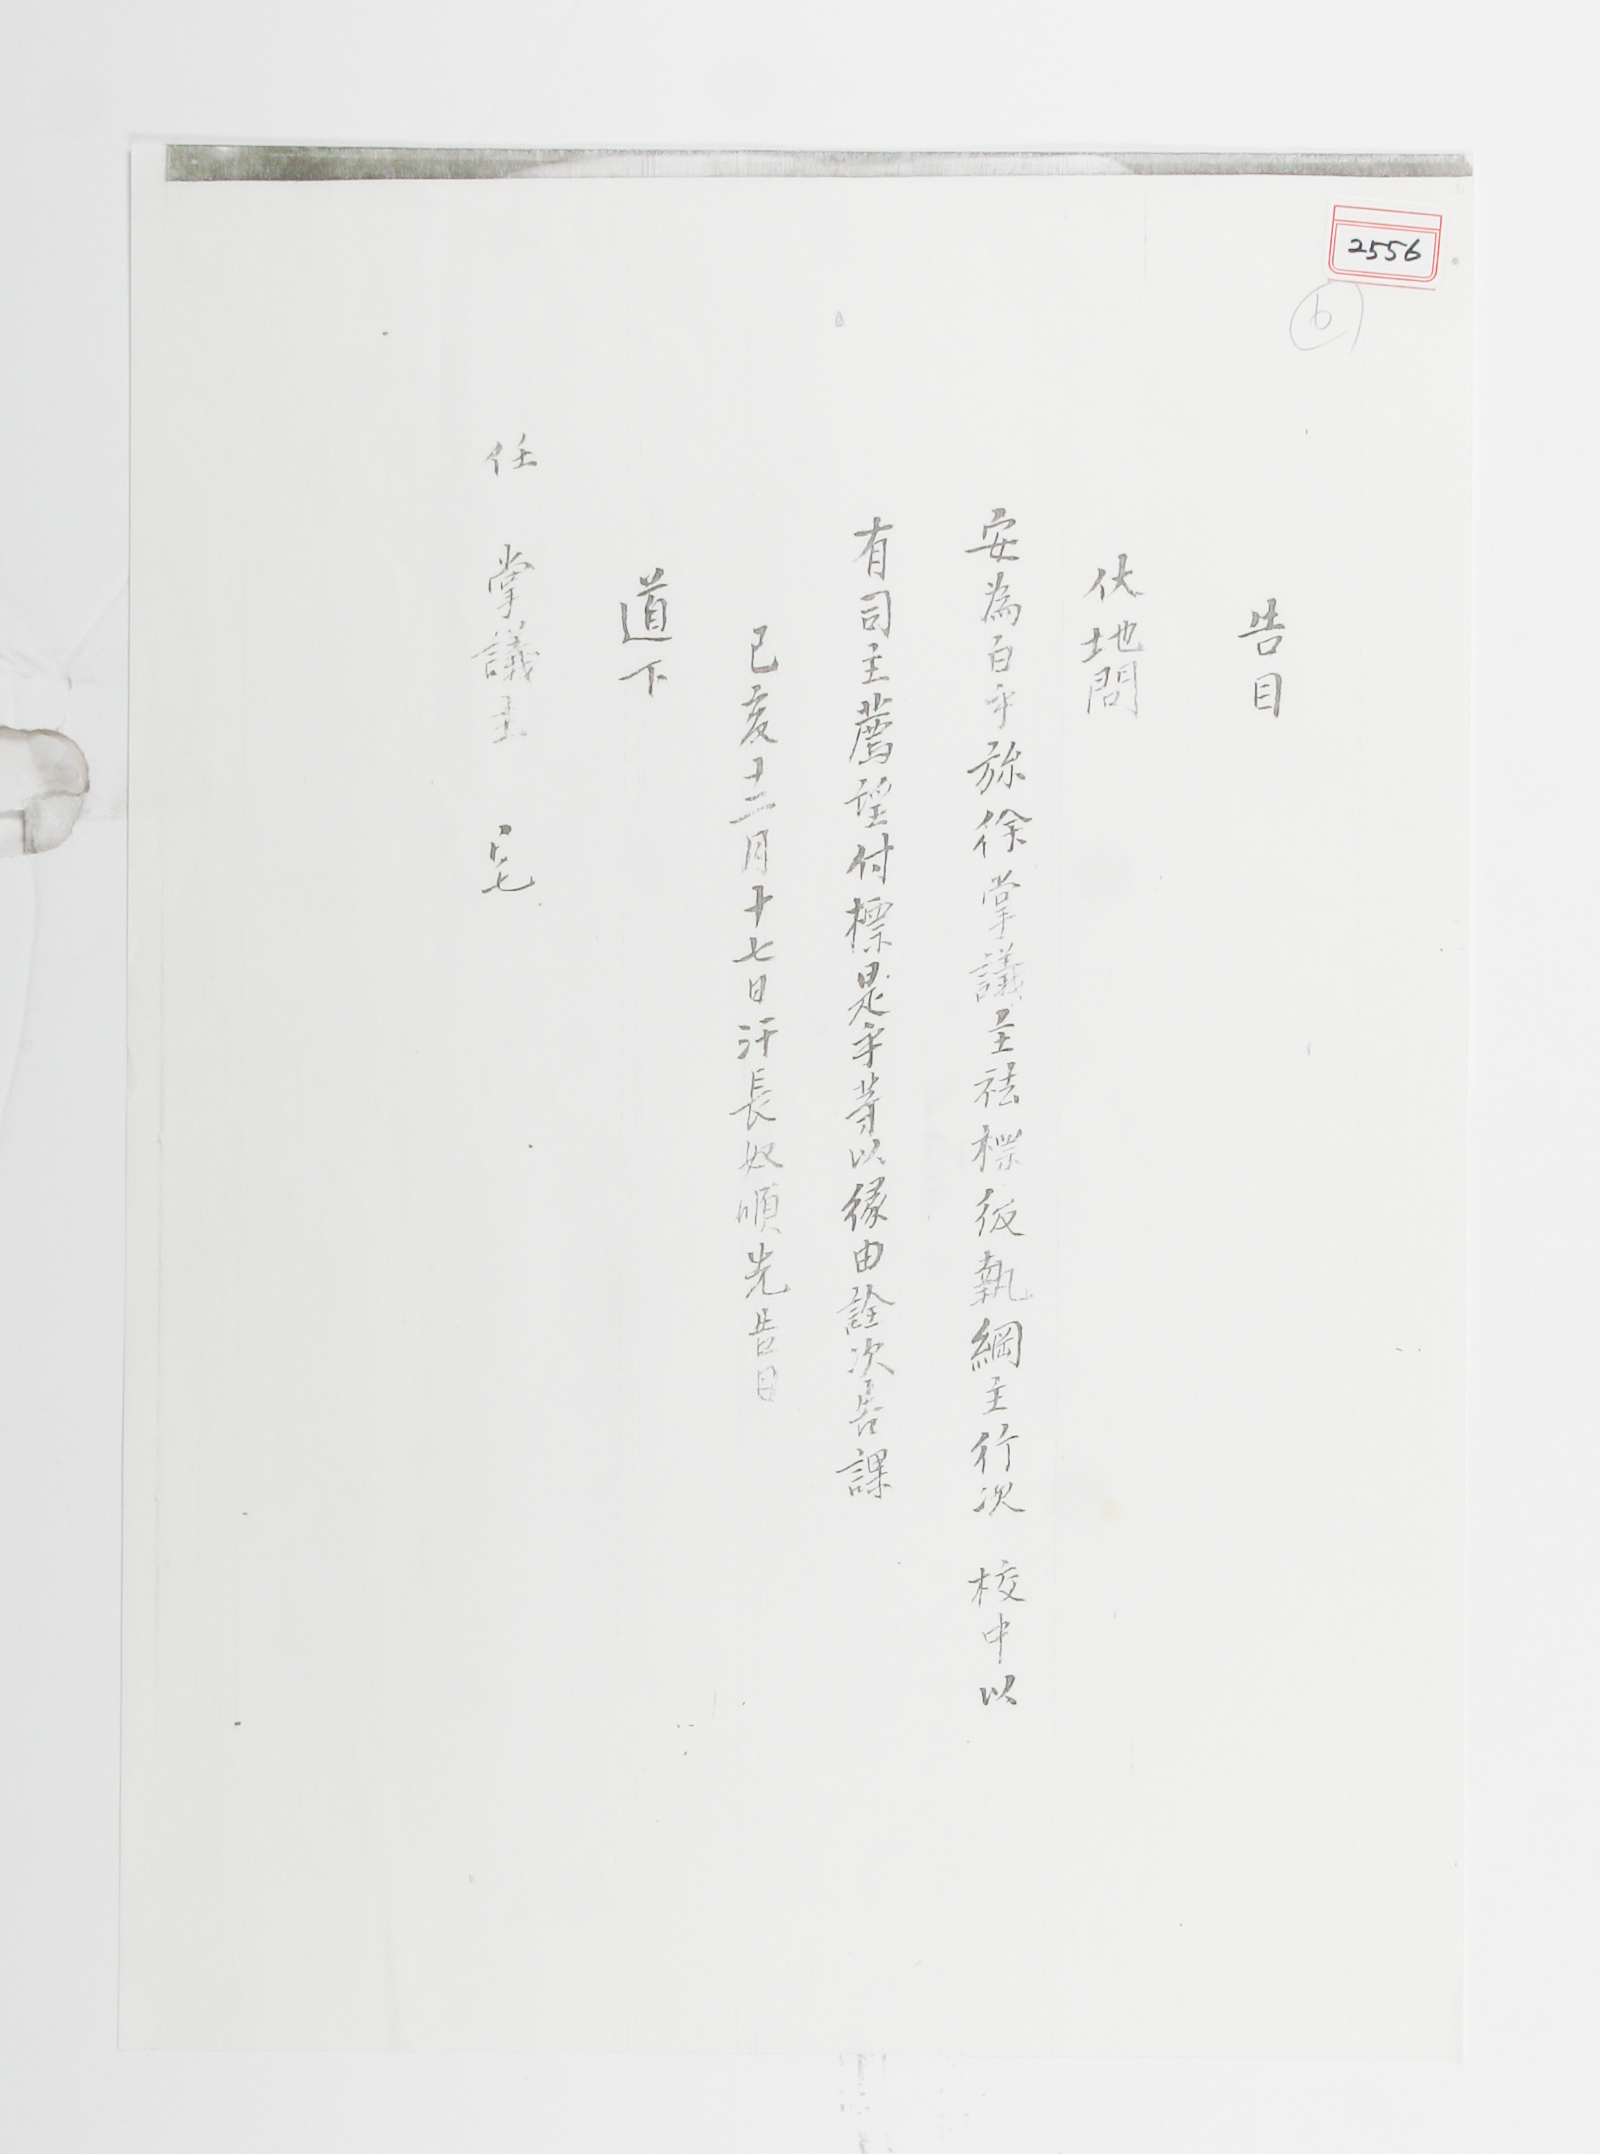 2556
6
告目
伏地問
安為白乎旀徐掌議主祛標後執綱主行次 校中以
有司主薦望付標是乎等以緣由詮次告課
己亥十二月十七日汗長奴順先告目
道下
任 掌議主 宅